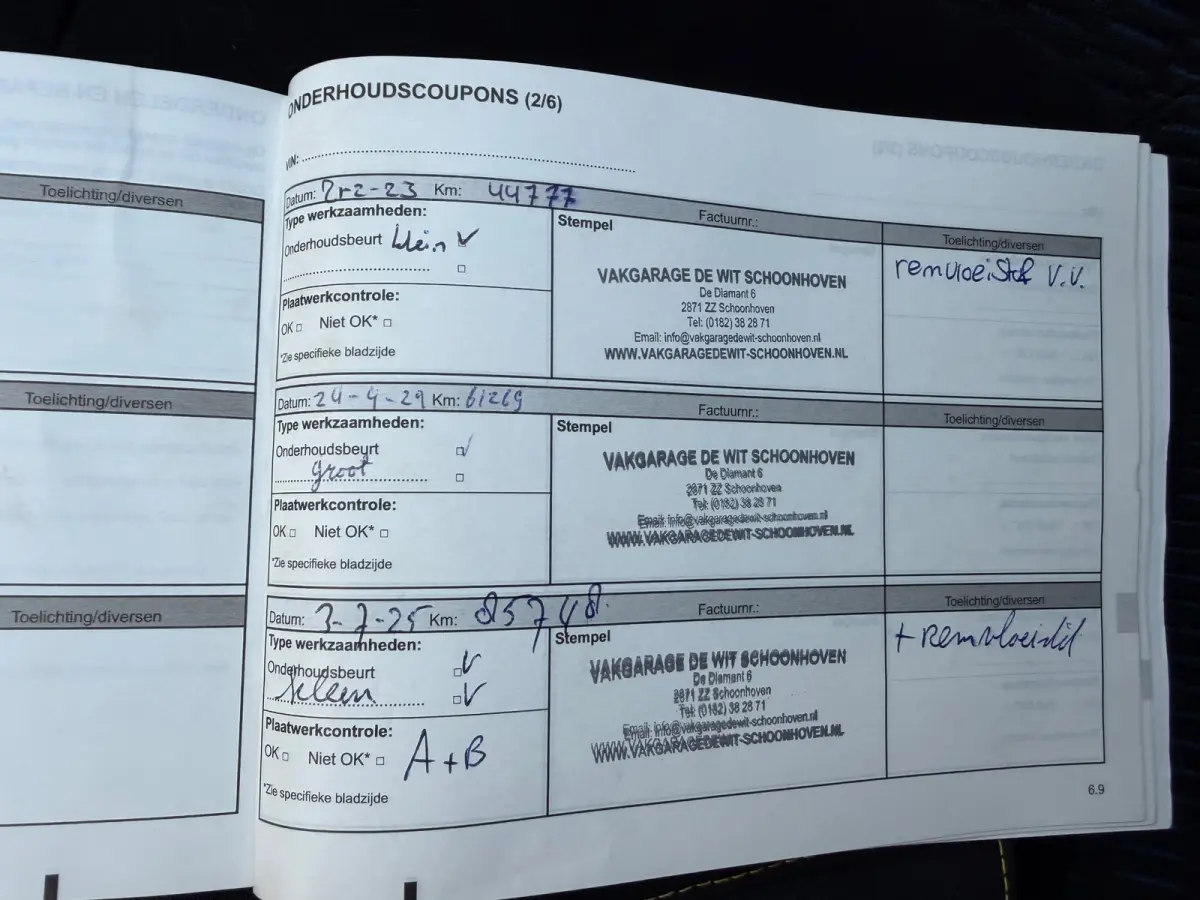 ONDERHOUDSCOUPONS (2/6)
VIN:
Toelichting/diversen
Toelichting/diversen
Toelichting/diversen
Datum: 2-2-23 Km: 44777
Factuurnr.:
Toelichting/diversen
Type werkzaamheden:
Onderhoudsbeurt klein ✓
Plaatwerkcontrole:
OK □ Niet OK* □
*Zie specifieke bladzijde
Stempel
VAKGARAGE DE WIT SCHOONHOVEN
De Diamant 6
2871 ZZ Schoonhoven
Tel: (0182) 38 28 71
Email: info@vakgaragedewit-schoonhoven.nl
WWW.VAKGARAGEDEWIT-SCHOONHOVEN.NL
remvloeistof V.V.
Datum: 24-4-24 Km: 61269
Factuurnr.:
Toelichting/diversen
Type werkzaamheden:
Onderhoudsbeurt ✓
groot □
Plaatwerkcontrole:
OK □ Niet OK* □
*Zie specifieke bladzijde
Stempel
VAKGARAGE DE WIT SCHOONHOVEN
De Diamant 6
2871 ZZ Schoonhoven
Tel: (0182) 38 28 71
Email: info@vakgaragedewit-schoonhoven.nl
WWW.VAKGARAGEDEWIT-SCHOONHOVEN.NL
Datum: 3-7-25 Km: 85748
Factuurnr.:
Toelichting/diversen
Type werkzaamheden:
Onderhoudsbeurt ✓
✓
Plaatwerkcontrole:
OK □ Niet OK* □ A+B
*Zie specifieke bladzijde
Stempel
VAKGARAGE DE WIT SCHOONHOVEN
De Diamant 6
2871 ZZ Schoonhoven
Tel: (0182) 38 28 71
Email: info@vakgaragedewit-schoonhoven.nl
WWW.VAKGARAGEDEWIT-SCHOONHOVEN.NL
+
6.9